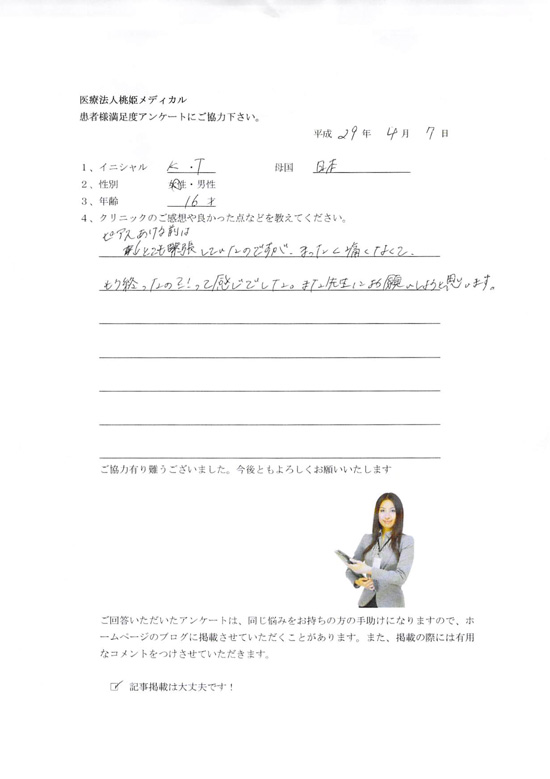 医療法人桃姫メディカル
患者様満足度アンケートにご協力下さい。
平成 29 年 4 月 7 日
1、イニシャル K・T 母国 日本
2、性別 女性・男性
3、年齢 16才
4、クリニックのご感想や良かった点などを教えてください。
ピアスあける前は
とても緊張していたのですが、まったく痛くなくて、
もう終ったの?!って感じでした。また先生にお願いしようと思います。
ご協力有り難うございました。今後ともよろしくお願いいたします
ご回答いただいたアンケートは、同じ悩みをお持ちの方の手助けになりますので、ホ
ームページのブログに掲載させていただくことがあります。また、掲載の際には有用
なコメントをつけさせていただきます。
☑ 記事掲載は大丈夫です!